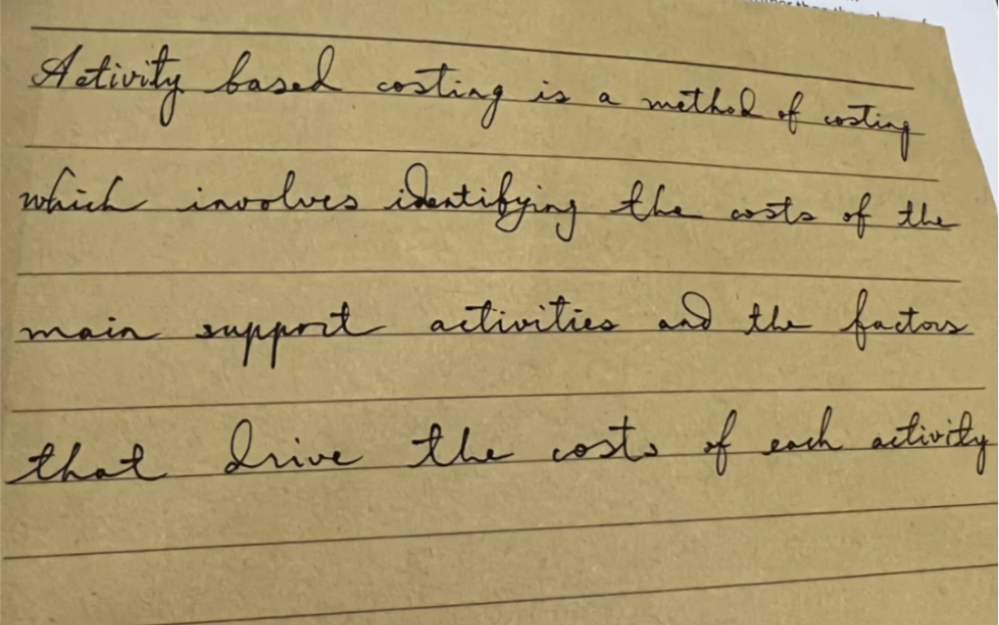 Activity based costing is a method of costing
which involves identifying the costs of the
main support activities and the factors
that drive the costs of each activity